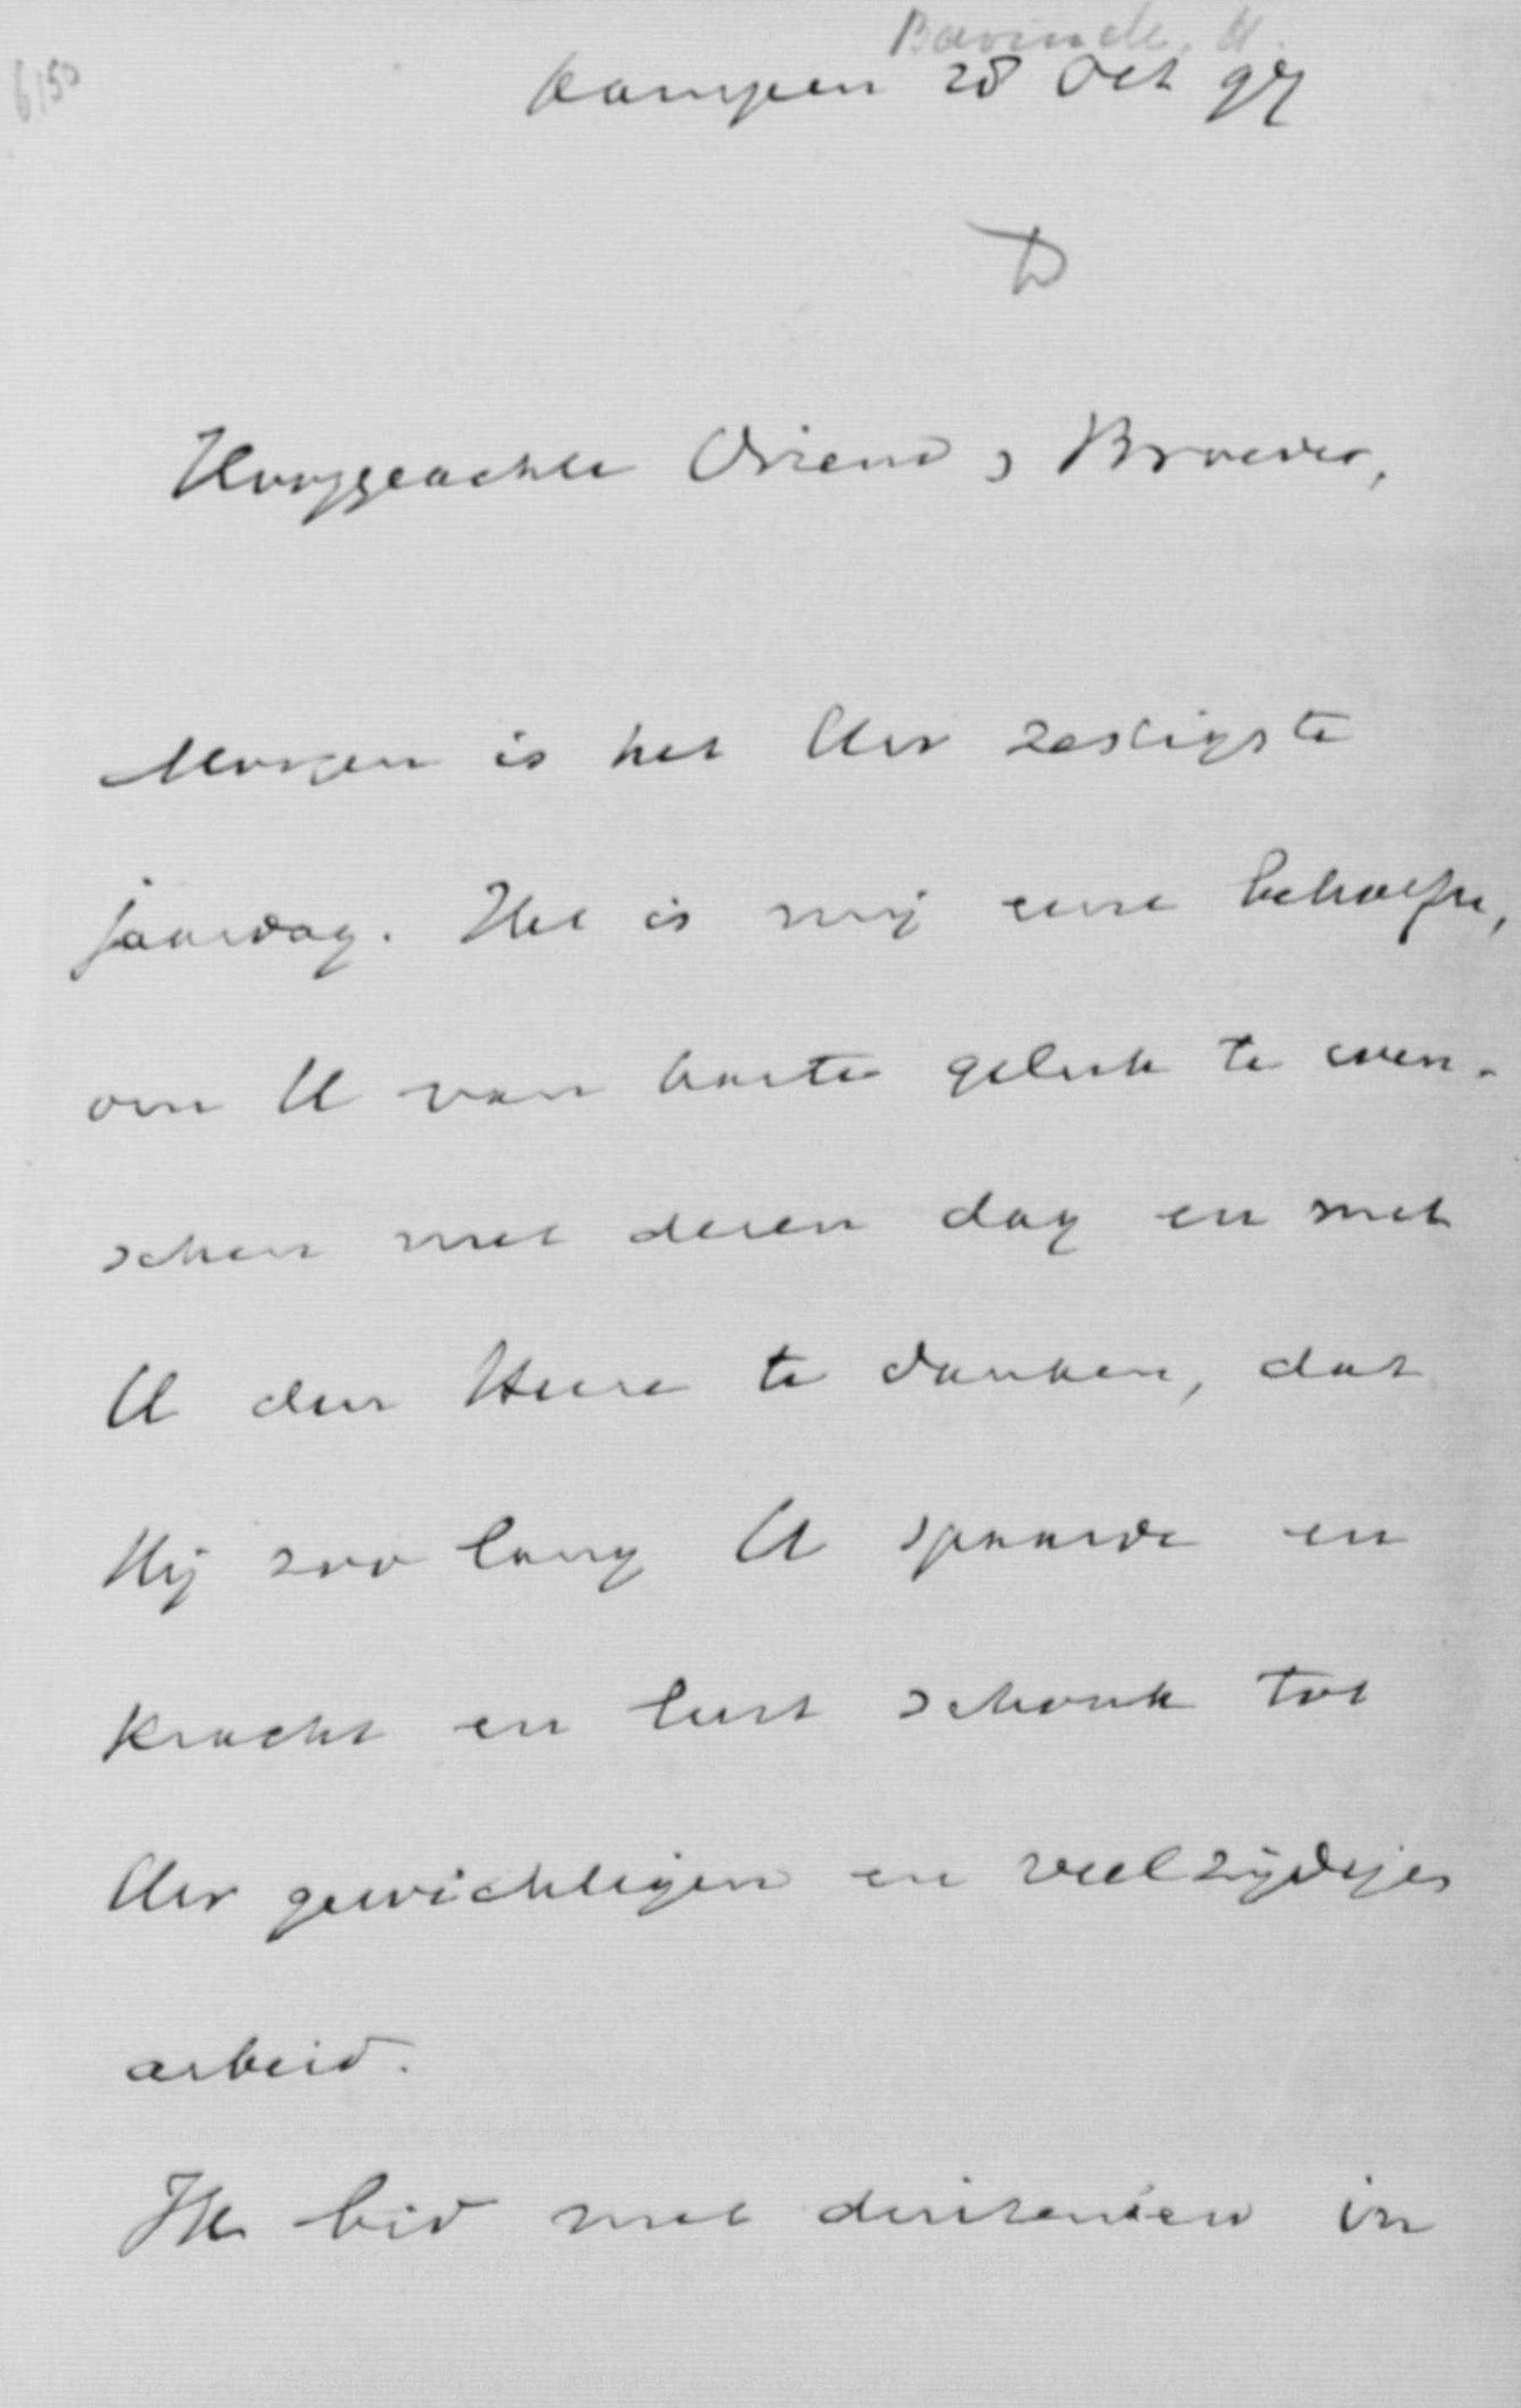 6150
Bavinck, H.
Kampen 28 Oct 97
Hooggeachte Vriend & Broeder,
Morgen is het Uw zestigste
jaardag. Het is mij eene behoefte,
om U van harte geluk te wen-
schen met dezen dag en met
U den Heere te danken, dat
Hij zoo lang U spaarde en
kracht en lust schonk tot
Uw gewichtigen en veelzijdigen
arbeid.
Ik bid met duizenden in